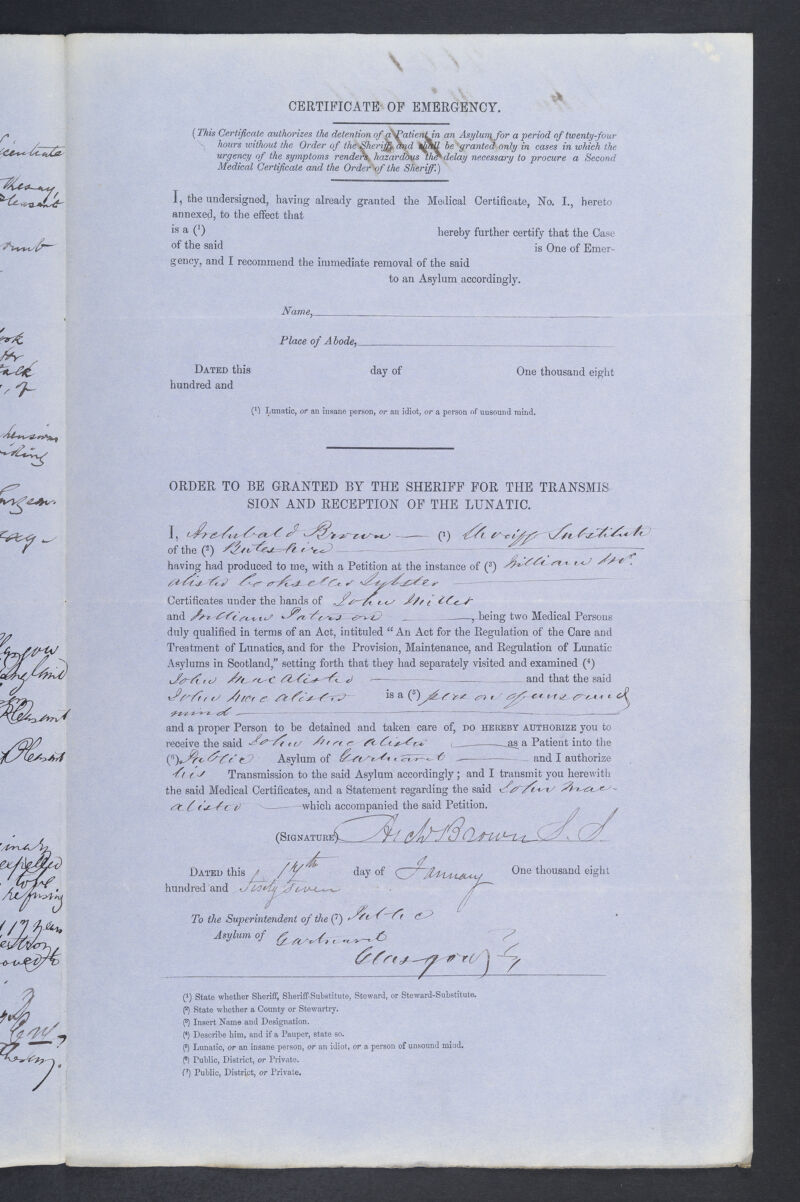 CERTIFICATE OF EMERGENCY.
(This Certificate authorizes the detention of a Patient in an Asylum for a period of twenty-four
hours without the Order of the Sheriff, and shall be granted only in cases in which the
urgency of the symptoms renders hazardous the delay necessary to procure a Second
Medical Certificate and the Order of the Sheriff.)
I, the undersigned, having already granted the Medical Certificate, No. I., hereto
annexed, to the effect that
is a (1) hereby further certify that the Case
of the said is One of Emer-
gency, and I recommend the immediate removal of the said
to an Asylum accordingly.
Name,
Place of Abode,
DATED this day of One thousand eight
hundred and
(1) Lunatic, or an insane person, or an idiot, or a person of unsound mind.
ORDER TO BE GRANTED BY THE SHERIFF FOR THE TRANSMIS-
SION AND RECEPTION OF THE LUNATIC.
I, Archibald Brown (1) Sheriff Substitute
of the (2) Buteshire
having had produced to me, with a Petition at the instance of (3) William Mc
alister Lybster
Certificates under the hands of John Miller
and William Paterson, being two Medical Persons
duly qualified in terms of an Act, intituled "An Act for the Regulation of the Care and
Treatment of Lunatics, and for the Provision, Maintenance, and Regulation of Lunatic
Asylums in Scotland," setting forth that they had separately visited and examined (4)
John Mac alister and that the said
John Mac alister is a (5) person of unsound
mind
and a proper Person to be detained and taken care of, DO HEREBY AUTHORIZE you to
receive the said John Mac alister as a Patient into the
(6) Public Asylum of Gartnavel and I authorize
his Transmission to the said Asylum accordingly; and I transmit you herewith
the said Medical Certificates, and a Statement regarding the said John Mac-
alister which accompanied the said Petition.
(SIGNATURE) Arch Brown S. S.
DATED this 17th day of January One thousand eight
hundred and Sixty Seven
To the Superintendent of the (7) Public
Asylum of Gartnavel
Glasgow
(1) State whether Sheriff, Sheriff-Substitute, Steward, or Steward-Substitute.
(2) State whether a County or Stewartry.
(3) Insert Name and Designation.
(4) Describe him, and if a Pauper, state so.
(5) Lunatic, or an insane person, or an idiot, or a person of unsound mind.
(6) Public, District, or Private.
(7) Public, District, or Private.